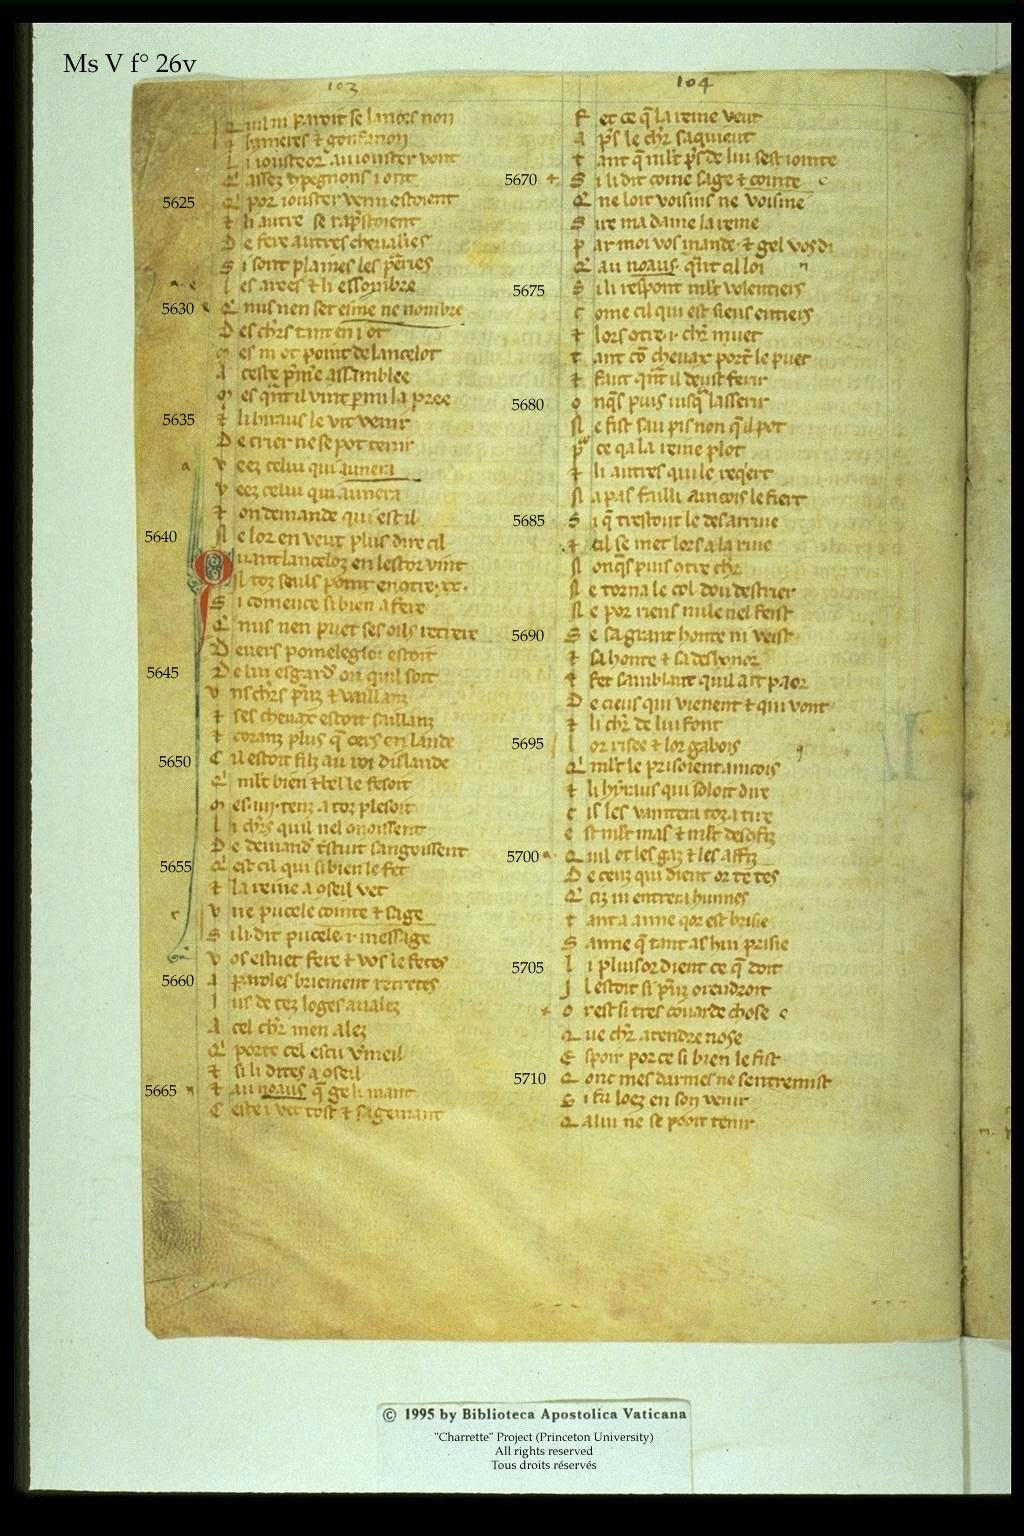 Ms V f° 26v
103
Q uil ni paroit se lances non
b anieres & gonfanon
L i iousteor au iouster vont
Q' assez 9pegnons i ont
5625
Q' por iouster venu estoient
& li autre se rap̃stoient
D e fere autres cheualies
S i sont plaines les p̃eries
l es arees & li essombre
5630
Q' nus nen set eime ne nombre
D es ch'rs tant en i ot
M es ni ot point de lancelot
A ceste p'mie assamblee
M es q̃nt il vint p mi la pree
5635
& li hiraus le vit venir
D e crier ne se pot tenir
v eez celui qui aunera
v eez celui qui aunera
& on demande qui est il
5640
N e lor en veut plus dire cil
Q uant lanceloz en lestor vint
Il toz seuls point en otre .xx.
S i comence si bien a fere
Q' nus nen puet ses oilz retrere
D evers pomelegloi estoit
5645
D e lui esgard' ou quil soit
V ns ch'rs p'uz & vaillanz
& ses chevax estoit saillanz
& coranz plus q̃ cers en lande
5650
C il estoit filz au roi dislande
Q' mlt bien & bel le fesoit
M es .iiij. tenz a toz plesoit
L i ch'rs quil nel conoissent
D e demand' t'stuit sangoissent
5655
Q' est cil qui si bien le fet
& la reine a oseil vet
v ne pucele cointe & sage
S i li dit pucele .i. message
V os estuet fere & vos le fetes
5660
A paroles briement retretes
I us de cez loges aualez
A cel ch'r men alez
Q' porte cel escu v'meil
& si li dites a oseil
5665
& au noaus q̃ ge li mant
C ele i vet tost & sagemant
104
F et ce q̃ la reine veut
A p's le ch'r saquieut
& ant q̃ mlt p's de lui sest iointe
5670
S i li dit come sage & cointe
Q' ne loit voisins ne voisine
S ire ma dame la reine
P ar moi vos mande & gel vos di
Q' au noaus. q̃nt cil loi
5675
S i li respont mlt volentiers
C ome cil qui est siens entiers
& lors otre .i. ch'r muet
T ant cõ chevax port' le puet
& faut q̃nt il deust ferir
5680
O nq̃s puis iusq' lasserir
N e fist sau pis non q̃ il pot
P' ce qa la reine plot
& li autres qui le req'ert
N a pas failli aincois le fiert
5685
S i q̃ trestout le desarriue
& cil se met lors a la fuie
N onq̃s puis otre ch'r
N e torna le col dou destrier
N e por riens nule nel feist
5690
S e sa grant honte ni veist
& sa honte & sa deshonor
& fet samblant quil ait paor
D e ceus qui vienent & qui vont
& li ch'r de lui font
5695
L or risee & lor gabois
Q' mlt le prisoient aincois
& li hyraus qui soloit dire
C is les vaintera toz a tire
E st mlt mas & mlt desofiz
5700
Q uil ot les gaz & les affiz
D e ceuz qui dient or te tes
Q' ciz ni entrera humes
T ant a aune qor est brisie
S aune q̃ tant as hui prisie
5705
L i pluisor dient ce q̃ doit
I l estoit si p'uz orendroit
O r est si tres couarde chose
Q ue ch'r atendre nose
E spoir por ce si bien le fist
5710
Q onc mes darmes ne sentremist
S i fu loez en son venir
Q a lui ne se pooit tenir
© 1995 by Biblioteca Apostolica Vaticana
"Charrette" Project (Princeton University)
All rights reserved
Tous droits réservés